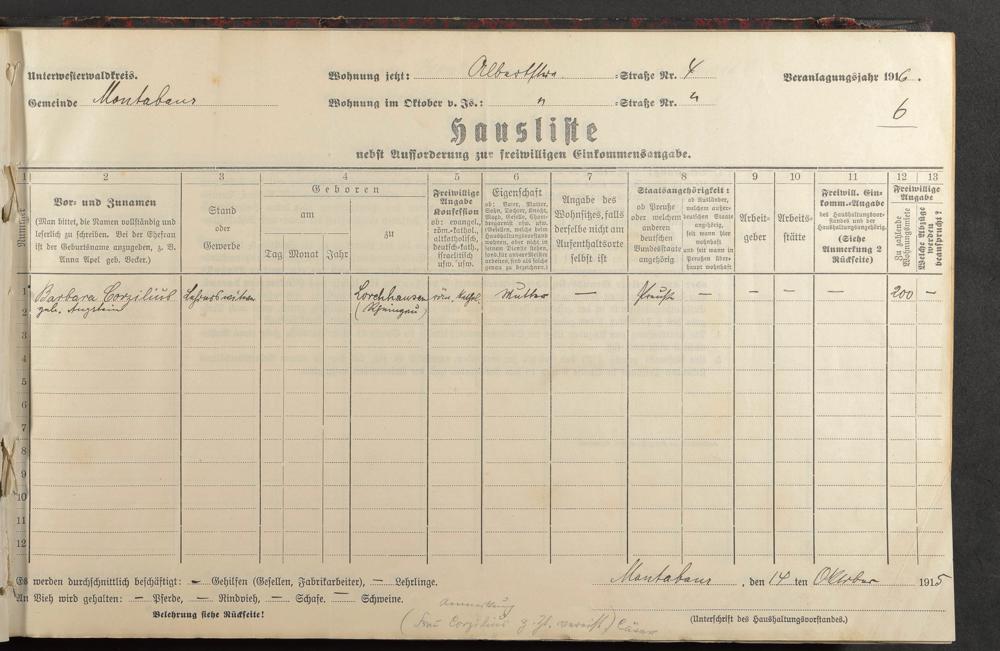 Unterwesterwaldkreis.
Wohnung jetzt: Albertstra. =Straße Nr. 4
Veranlagungsjahr 1916.
Gemeinde Montabaur
Wohnung im Oktober v. Js.: " =Straße Nr. "
6
Hausliste
nebst Aufforderung zur freiwilligen Einkommensangabe.
1 2 3 4 5 6 7 8 9 10 11 12 13
Nummer
Vor- und Zunamen
(Man bittet, die Namen vollständig und
leserlich zu schreiben. Bei der Ehefrau
ist der Geburtsname anzugeben, z. B.
Anna Apel geb. Becker.)
Stand
oder
Gewerbe
Geboren
am
Tag Monat Jahr
zu
Freiwillige
Angabe
Konfession
ob: evangel.,
röm.-kathol.,
altkatholisch,
deutsch-kath.,
israelitisch
usw. usw.
Eigenschaft
ob: Vater, Mutter,
Sohn, Tochter, Knecht,
Magd, Geselle,
Angabe des
Wohnsitzes, falls
derselbe nicht am
Aufenthaltsorte
selbst ist
Staatsangehörigkeit:
ob Preuße
oder welchem
anderen
deutschen
Bundesstaate
angehörig
ob Ausländer,
welchem außer-
deutschen Staate
angehörig,
seit wann hier
wohnhaft
und seit wann in
Preußen über-
haupt wohnhaft
Arbeit-
geber
Arbeits-
stätte
Freiwill. Ein-
komm.-Angabe
des Haushaltungsvor-
standes und der
Haushaltungsangehörig.
(Siehe
Anmerkung 2
Rückseite)
Freiwillige
Angabe
Zu zahlende
Wohnungsmiete
Welche Abzüge
werden
beansprucht?
1 Barbara Corzilius Lehrerswitwe Lorchhausen röm. kathol. Mutter — Preuße — — — — 200 —
2 geb. (Rheingau)
3
4
5
6
7
8
9
10
11
12
Es werden durchschnittlich beschäftigt: — Gehilfen (Gesellen, Fabrikarbeiter), — Lehrlinge.
Montabaur, den 14 ten Oktober 1915
An Vieh wird gehalten: — Pferde, — Rindvieh, — Schafe. — Schweine.
Belehrung siehe Rückseite!
Anmerkung
(Frau Corzilius z. Zt. verreist)
(Unterschrift des Haushaltungsvorstandes.)